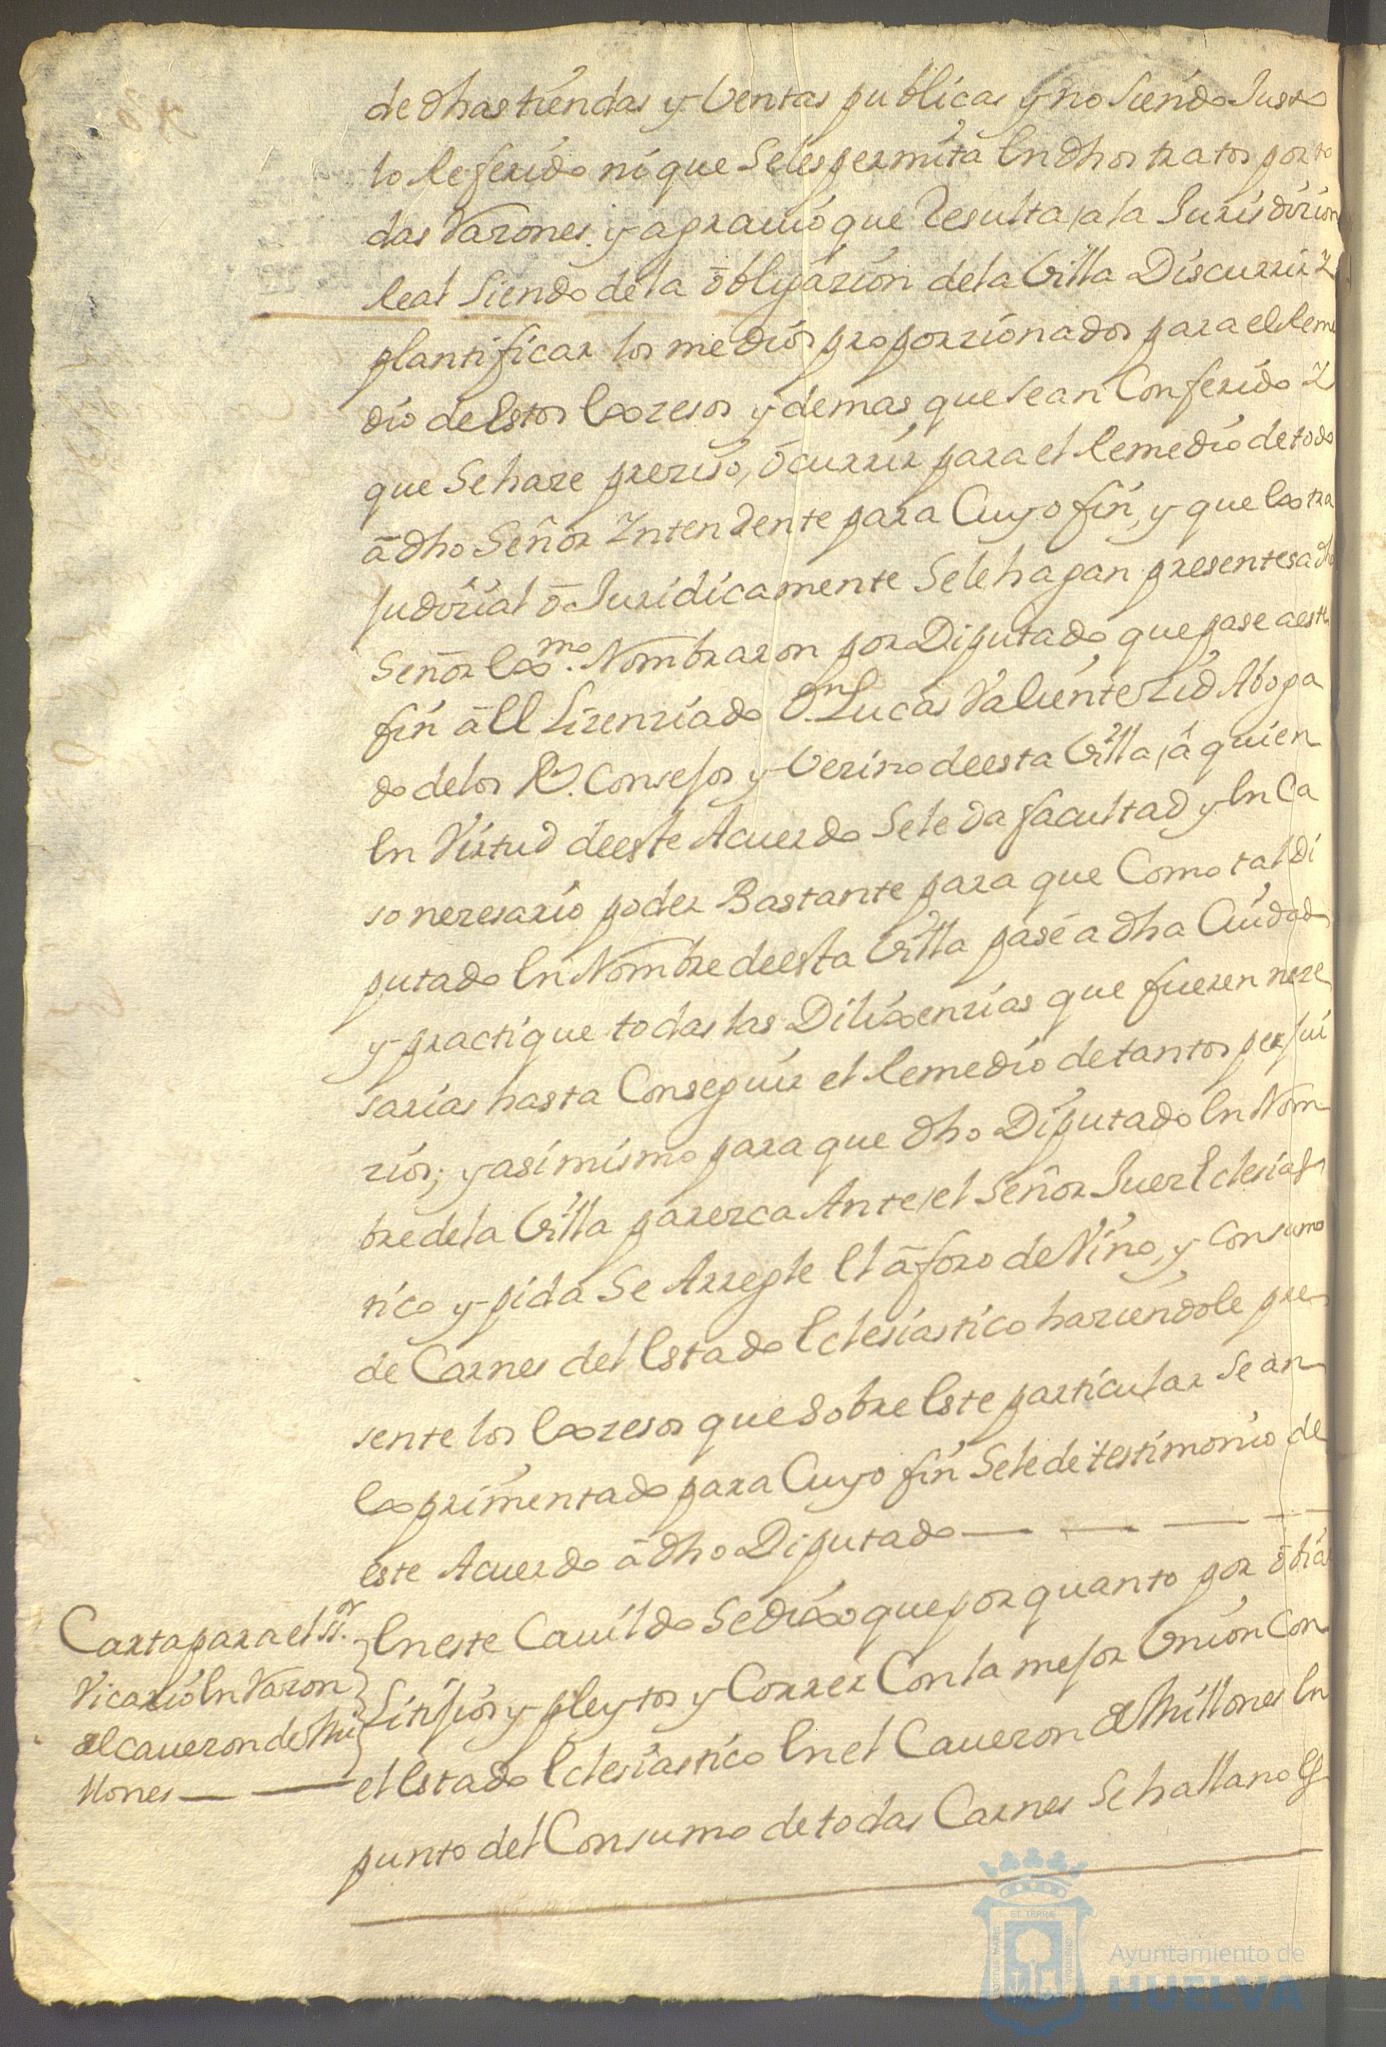 de dhas tiendas y Ventas publicas y no Siendo Justo
lo Referido ni que Seles permita En dhos tratos por to
das Razones, y agrauio que Resulta, a la Jurisdizion
Real Siendo dela obligazion dela Villa Discurrir Y
plantificar los medios proporzionados para el Reme
dio de Estos Exzesos y demas que sean Conferido Y
que Sehaze preziso, ocurrir para el Remedio detodo
a dho Señor Yntendente para Cuyo fin, y que Extra
Judizial o Juridicamente Sele hagan presentes a dho
Señor Exmo. Nombraron por Diputado que pase aeste
fin a El Lizenziado Dn. Lucas Valiente Zid Aboga
do delos Rs. Consejos y Vezino deesta Villa, a quien
En Virtud deeste Acuerdo Sele da facultad y En Ca
so nezesario poder Bastante para que Como tal Di
putado En Nombre deesta Villa pase a dha Ciudad
y practique todas las Dilixenzias que fueren neze
sarias hasta Conseguir el Remedio detantos perjui
zios; y asimismo para que dho Diputado En Nom
bre dela Villa parezca Ante, el Señor Juez Eclesias
tico y pida Se Arregle El aforo de Vino, y Consumo
de Carnes del Estado Eclesiastico haziendole pre
sente los Exzesos que Sobre Este particular Se an
Exprimentado para Cuyo fin Sele de testimonio de
este Acuerdo a dho Diputado
Carta para el Sr.
Vicario En Razon
al caueron de Mi
llones
En este Cauildo Sedixo que por quanto por obiar
Litijios y pleytos y Correr Con la mejor Union Con
el Estado Eclesiastico En el Caueron de Millones En
punto del Consumo de todas Carnes Se hallano Es
Ayuntamiento de
HUELVA